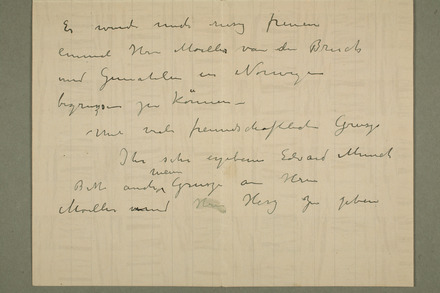 Es würde mich riesig freuen
einmal Herr Moeller van den Bruck
und Gemahlin in Norwegen
begrüssen zu können –
Mit viele freundschaftliche Grüsse
Ihr sehr ergebene Edvard Munch
mein
Bitte andre Grusse an Herrn
Moeller und Herz zu geben